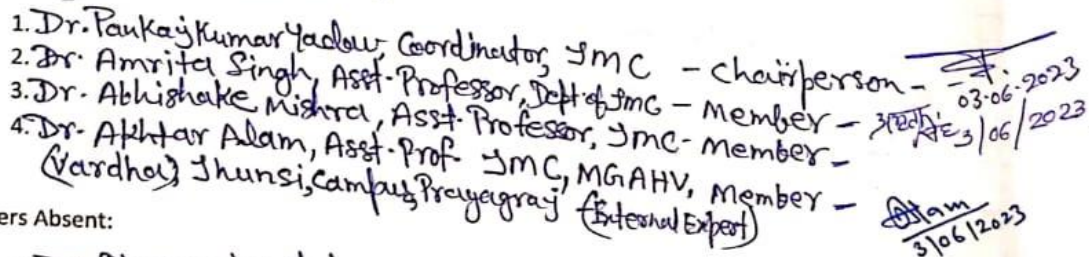 1. Dr. Pankaj Kumar Yadav, Coordinator, JMC - Chairperson -
03-06-2023
2. Dr. Amrita Singh, Asst. Professor, Dept of JMC - Member -
3/06/2023
3. Dr. Abhishake Mishra, Asst. Professor, JMC - Member -
4. Dr. Akhtar Alam, Asst. Prof. JMC, MGAHV, Member -
(Vardha), Jhunsi, Campus, Prayagraj (External Expert)
Alam
3/06/2023
ers Absent: